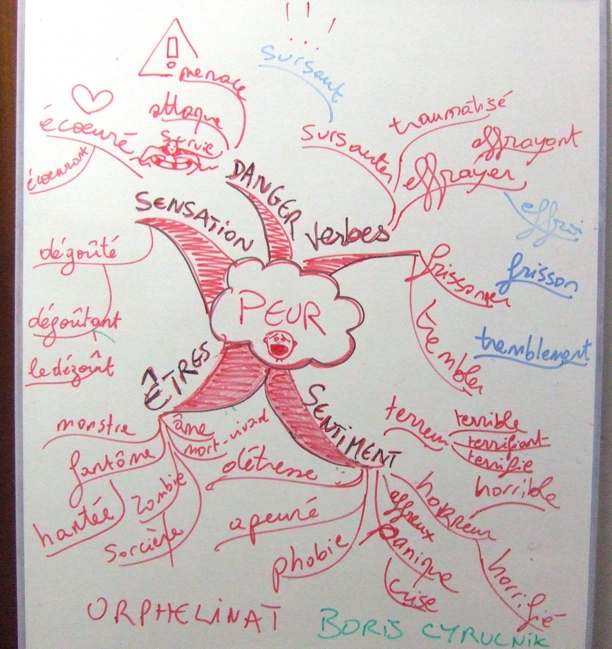 ! ! !
sursaut
!
menace
attaque
survie
écœuré
écœurant
sursauter
traumatisé
effrayant
effrayer
effroi
DANGER
SENSATION
Verbes
frissonner
frisson
trembler
tremblement
dégoûté
dégoûtant
le dégoût
PEUR
ÊTRES
monstre
âme
mort-vivant
fantôme
hantée
zombie
sorcière
SENTIMENT
détresse
apeuré
phobie
terreur
terrible
terrifiant
terrifié
horreur
horrible
horrifié
affreux
panique
crise
ORPHELINAT
BORIS CYRULNIK